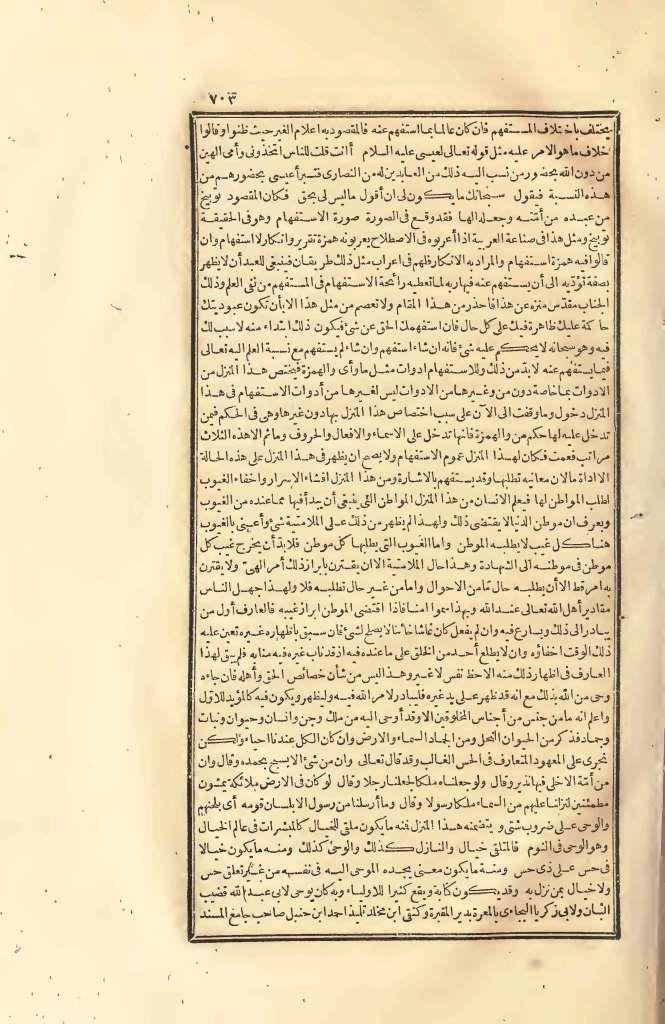 ٧٠٣
يختلف باختلاف المستفهم فان كان عالما بما استفهم عنه فالمقصود به اعلام الغير حيث ظنوا وقالوا
خلاف ما هو الامر عليه مثل قوله تعالى لعيسى عليه السلام أأنت قلت للناس اتخذونى وأمى الهين
من دون الله بحضور من نسب اليه ذلك من العابدين له من النصارى فتبرأ عيسى بحضورهم من
هذه النسبة فيقول سبحانك ما يكون لى ان أقول ما ليس لى بحق فكان المقصود توبيخ
من عبده من أمّته وجعله الها فقد وقع فى الصورة صورة الاستفهام وهو فى الحقيقة
توبيخ ومثل هذا فى صناعة العربية اذا أعربوه فى الاصطلاح يعربونه همزة تقرير وانكار لا استفهام وان
قالوا فيه همزة استفهام والمراد به الانكار فلهم فى اعراب مثل ذلك طريقان فينبغى للعبد أن لا يظهر
بصفة تؤدّيه الى أن يستفهمه عنه فيها ربه لما تعطيه رائحة الاستفهام فى المستفهم من نفى العلم وذلك
الجناب مقدّس منزه عن هذا فاحذر من هذا المقام ولا تعصم من مثل هذا الا بأن تكون عبوديتك
حاكمة عليك ظاهرة فيك على كل حال فان استفهمك الحق عن شئ فيكون ذلك ابتداء منه لا سبب لك
فيه وهو سبحانه لا يحكم عليه شئ فانه ان شاء استفهم وان شاء لم يستفهم مع نسبة العلم اليه تعالى
فيما يستفهم عنه لا بدّ من ذلك وللاستفهام ادوات مثل ما وأى والهمزة فيختص هذا المنزل من
الادوات بما خاصة دون من وغيرها من الادوات ليس لغيرها من أدوات الاستفهام فى هذا
المنزل دخول وما وقفت الى الآن على سبب اختصاص هذا المنزل بها دون غيرها وهى فى الحكم فيمن
تدخل عليه لها حكم من والهمزة فانها تدخل على الاسماء والافعال والحروف وما ثم الا هذه الثلاث
مراتب فعمت فكان لهذا المنزل عموم الاستفهام ولا يصح ان يظهر فى هذا المنزل على هذه الحالة
الا اداة ما لان معانيه تطلبها وقد يستفهم بالاشارة ومن هذا المنزل افشاء الاسرار واخفاء الغيوب
لطلب المواطن لها فيعلم الانسان من هذا المنزل المواطن التى ينبغى أن يبدأ فيها مما عنده من الغيوب
ويعرف ان موطن الدنيا لا يقتضى ذلك ولهذا لم يظهر من ذلك على الملامتية شئ وأعنى بالغيوب
هنا كل غيب لا يطلبه الموطن واما الغيوب التى يطلبها كل موطن فلا بدّ أن يخرج غيب كل
موطن فى موطنه الى الشهادة وهذا حال الملامتية الا ان يقترن بابراز ذلك أمر الهىّ ولا يقترن
به امر قط الا أن يطلبه حال ما من الاحوال واما من غير حال تطلبه فلا ولهذا جهل الناس
مقادير أهل الله تعالى عند الله وبهذا سموا امناء فاذا اقتضى الموطن ابراز غيبه فالعارف أول من
يبادر الى ذلك ويسارع فيه وان لم يفعل كان غاشا خائنا لا يصلح لشئ فان سبق باظهاره غيره تعين عليه
ذلك الوقت اخفاؤه وان لا يطلع أحد من الخلق على ما عنده فيه اذ قد ناب غيره فيه منابه فلم يبق لهذا
العارف فى اظهار ذلك منه الا حظ نفس لا غير وهذا ليس من شأن خصائص الحق وأهله فان جاءه
وحى من الله بذلك مع انه قد ظهر على يد غيره فليبادر لامر الله فيه وليظهر ويكون فيه كالمؤيد للاوّل
واعلم انه ما من جنس من أجناس المخلوقين الا وقد أوحى اليه من ملك وجن وانسان وحيوان ونبات
وجماد فذكر من الحيوان النحل ومن الجماد السماء والارض وان كان الكل عندنا احياء ولكن
نجرى على المعهود المتعارف فى الحس الغالب وقد قال تعالى وان من شئ الا يسبح بحمده وقال وان
من أمّة الا خلى فيها نذير وقال ولو جعلناه ملكا لجعلناه رجلا وقال لو كان فى الارض ملائكة يمشون
مطمئنين لنزلنا عليهم من السماء ملكا رسولا وقال وما أرسلنا من رسول الا بلسان قومه أى بلغتهم
والوحى على ضروب شتى ويتضمنه هذا المنزل فمنه ما يكون متلقى للخيال كالمبشرات فى عالم الخيال
وهو الوحى فى النوم فالمتلقى خيال والنازل كذلك والوحى كذلك ومنه ما يكون خيالا
فى حس على ذى حس ومنه ما يكون معنى يجده الموحى اليه فى نفسه من غير تعلق حس
ولا خيال بمن نزل به وقد يكون كتابة ويقع كثيرا للاولياء وبه كان يوحى لابى عبد الله قضيب
البان ولابى زكريا البجائى بالمعرة بدير المقبرة وكبقى ابن مخلد تليذ احمد ابن حنبل صاحب جامع المسند